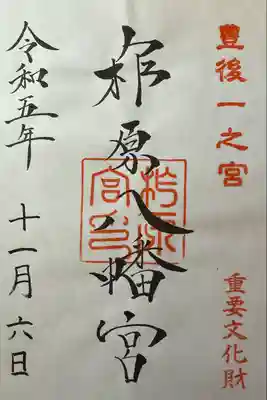 豊後一之宮
重要文化財
柞原八幡宮
令和五年
十一月六日